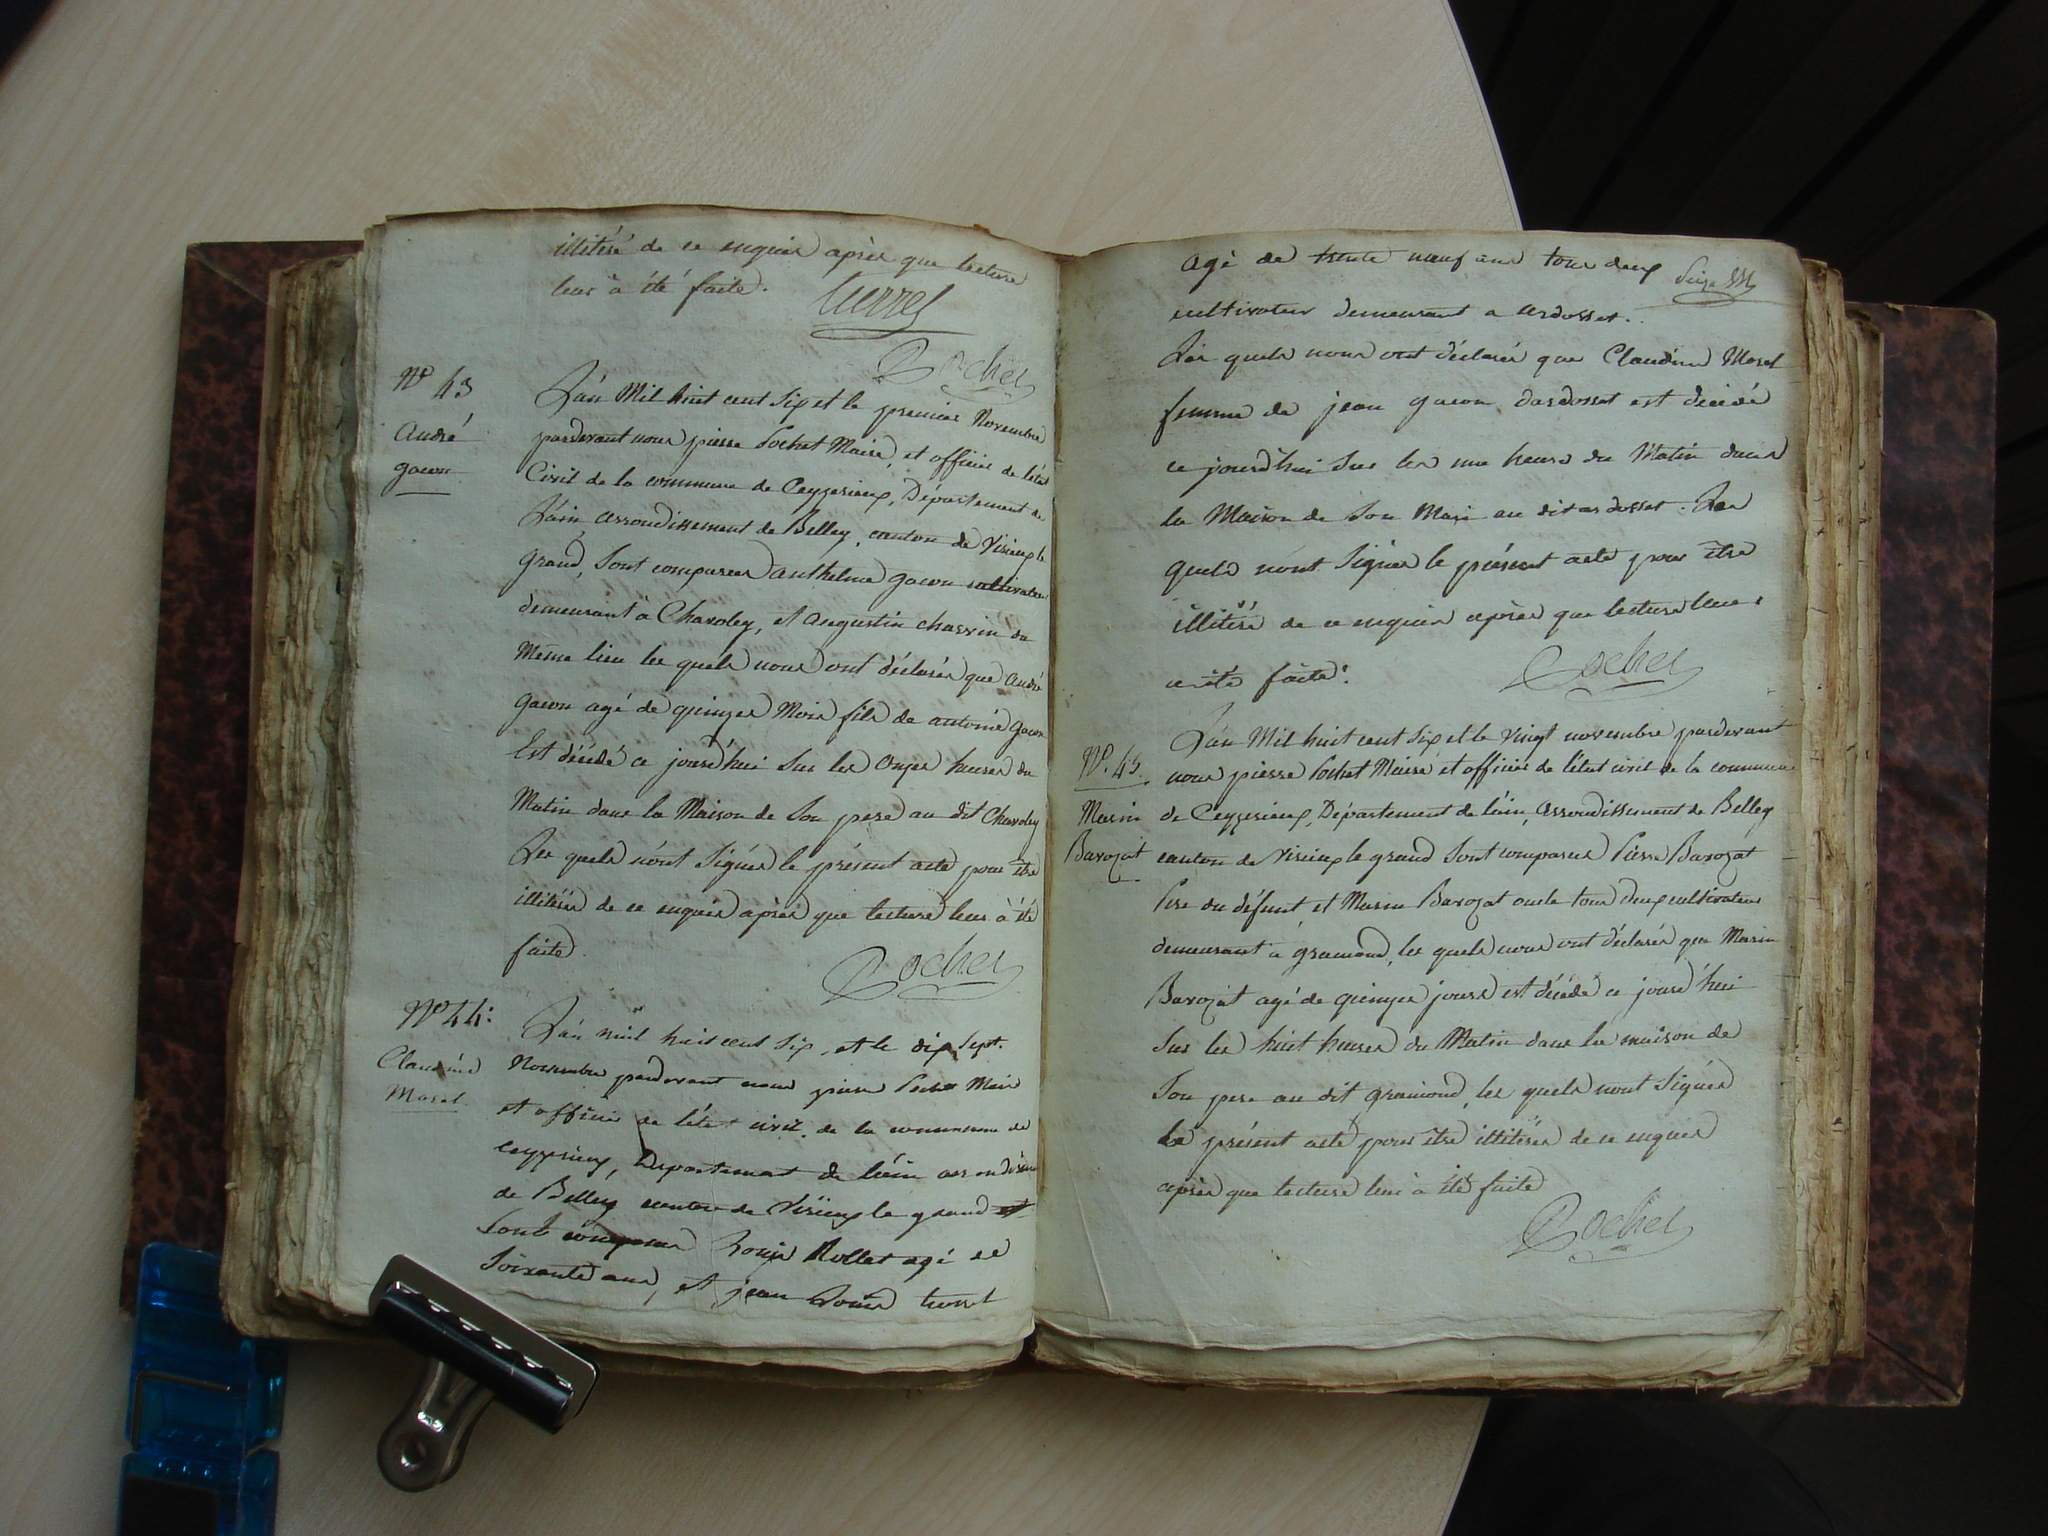 illitéré de ce enquis après que lecture
leur à été faite.
Cochet
N° 43
André
gacon
L'an Mil huit cent Six et le premier Novembre
pardevant nous pierre Cochet Maire, et officier de l'état
Civil de la commune de Ceyzerieux, Département de
L'ain arrondissement de Belley, canton de Virieux le
grand, Sont comparus anthelme gacon cultivateur
demeurant à Chavoley, et augustin charvin du
Même lieu les quels nous ont déclarés que andré
gacon agé de quinzes Mois fils de antoine gacon
Est décédé ce jourd'hui Sur les Onzes heures du
Matin dans la Maison de Son pere au dit Chavoley
Les quels n'ont Signés le présent acte pour être
illitérés de ce enquis après que lecture leur à été
faite
Cochet
N° 44:
Claudine
Morel
L'an mil huit cent Six, et le dix Sept.
Novembre pardevant nous pierre Cochet Maire
et officier de l'état civil de la commune de
ceyzerieux, Departement de l'ain arrondisem
de Belley canton de Virieux le grand et
Sont comparus Louis Rollet agé de
Soixante ans, et jean Louis
agé de trente neuf ans tous deux
cultivateur demeurant a ardosset.
Les quels nous ont déclarés que Claudine Morel
femme de jean gacon dardosset est décédé
ce jourd'hui Sur les une heure du Matin dans
la Maison de Son Mari au dit ardosset. Les
quels n'ont Signés le présent acte pour être
illitéré de ce enquis après que lecture leur
a été faite.
Cochet
N°. 45.
Marin
Barozat
L'an Mil huit cent Six et le vingt novembre pardevant
nous pierre Cochet Maire et officier de l'état civil de la commune
de Ceyzerieux, Département de l'ain, arrondissement de Belley
canton de Virieux le grand Sont comparus Pierre Barozat
Pere du défunt, et Marin Barozat oncle tous deux cultivateurs
demeurant à gramond, les quels nous ont déclarés que Marin
Barozat agé de quinzes jours est décédé ce jourd'hui
Sur les huit heures du Matin dans la maison de
Son pere au dit gramond, les quels n'ont Signés
Le présent acte pour être illitérés de ce enquis
après que lecture leur à été faite
Cochet